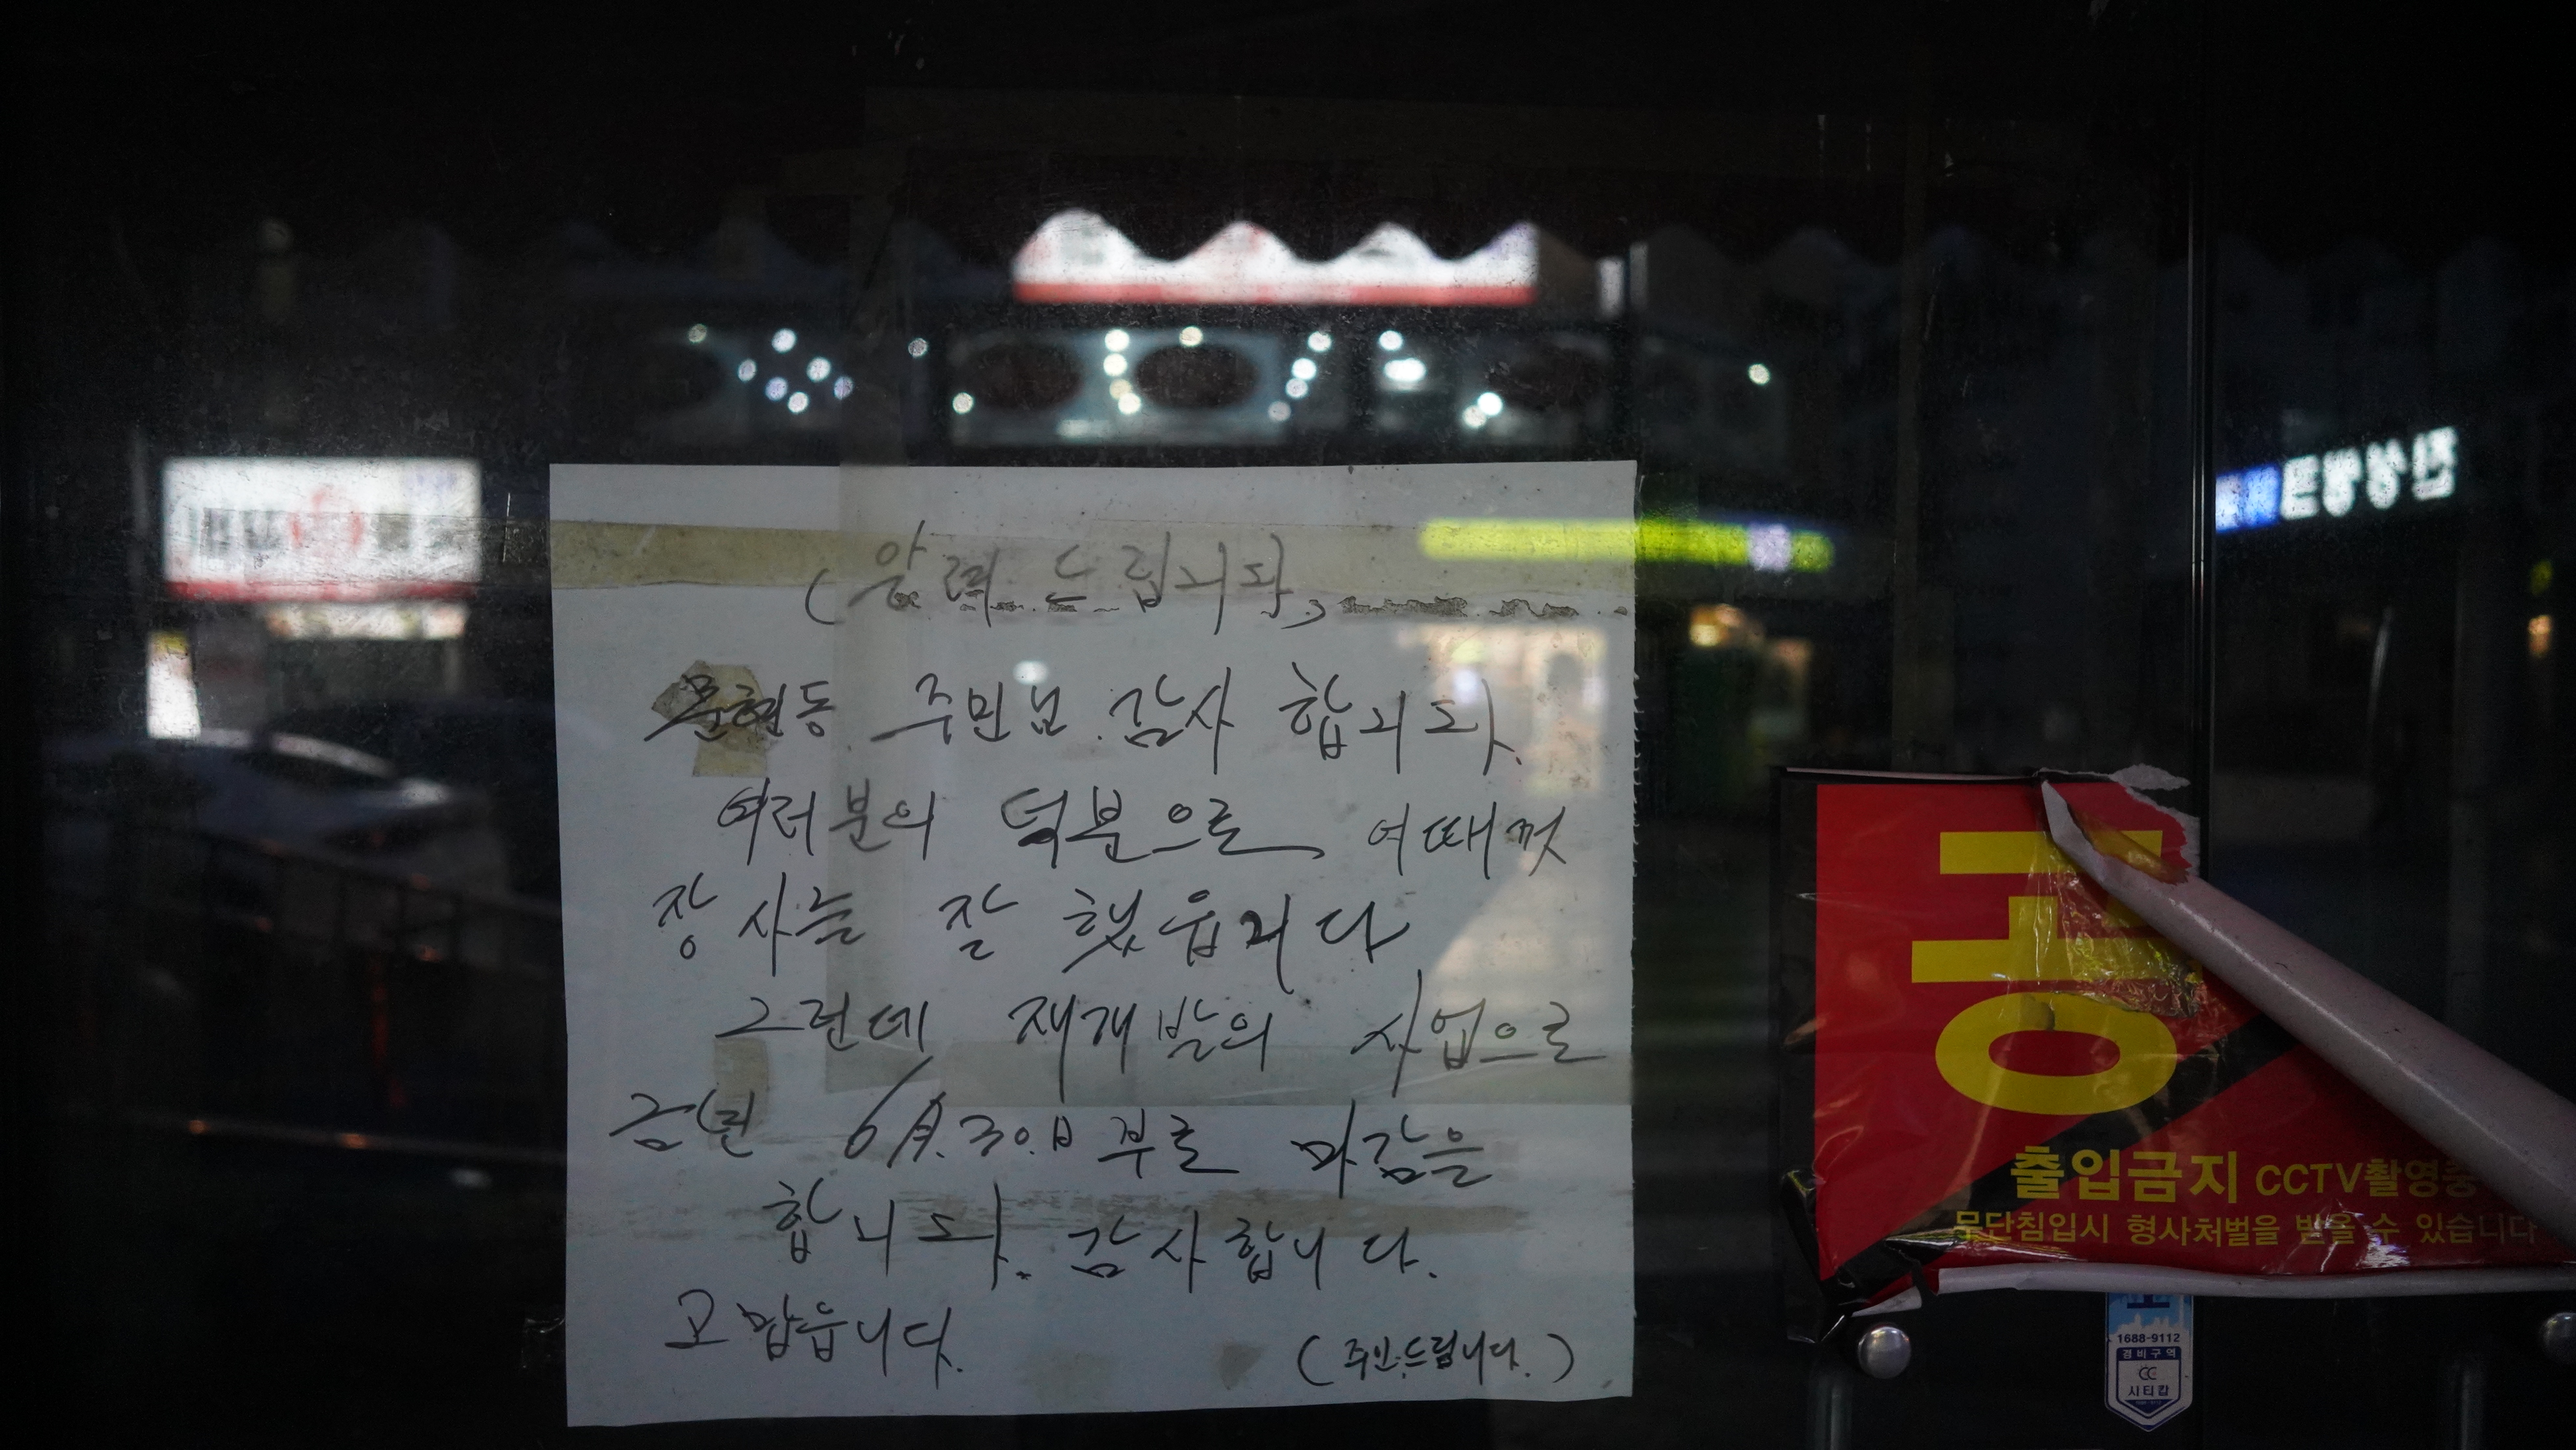 (알려 드립니다)
문현동 주민님 감사 합니다.
여러분의 덕분으로 여때껏
장사를 잘 했읍니다
그런데 재개발의 사업으로
금년 6月.30.日부로 마감을
합니다. 감사합니다.
고맙읍니다.
(주인.드림니다.)
출입금지 CCTV촬영중
무단침입시 형사처벌을 받을 수 있습니다
1688-9112
경비구역
CC
시티캅